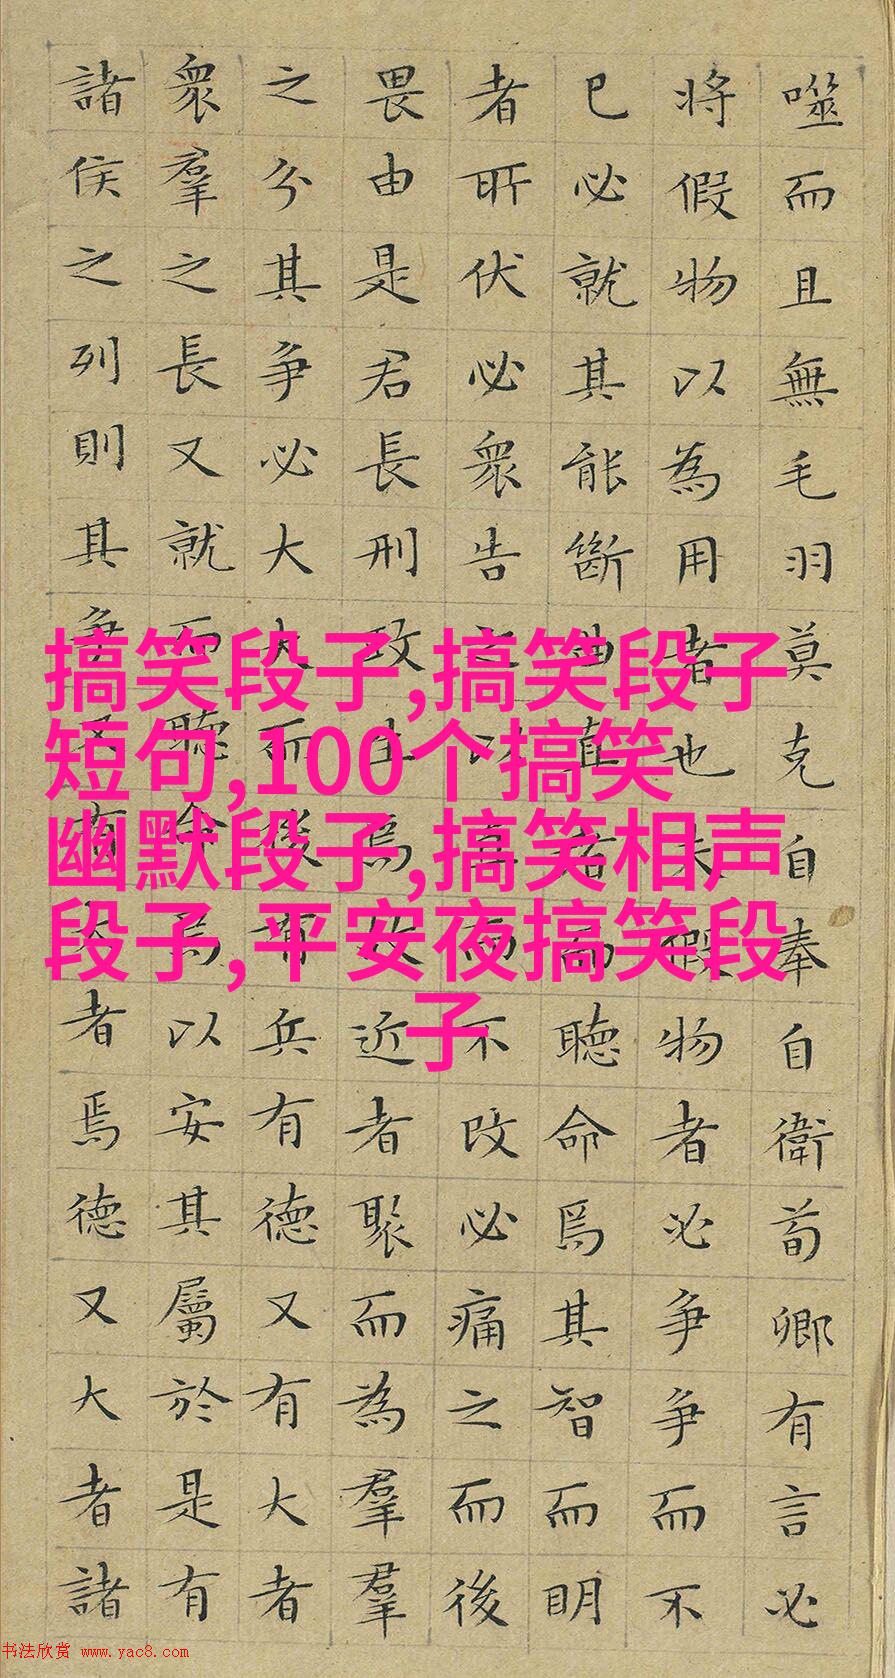 噬而且無毛羽莫克自奉自衛荀卿有言必
將假物以為用者也夫假物者必爭爭而不
已必就其能斷曲直者而聽命焉其智而明
者所伏必衆告之以直而不改必痛之而後
畏由是君長刑政生焉故近者聚而為羣羣
之分其爭必大大而後有兵有德又有大者
衆羣之長又就而聽命焉以安其屬於是有
諸侯之列則其爭又有大者焉德又大者諸
搞笑段子,搞笑段子
短句,100个搞笑
幽默段子,搞笑相声
段子,平安夜搞笑段
子
书法欣赏 www.yac8.com